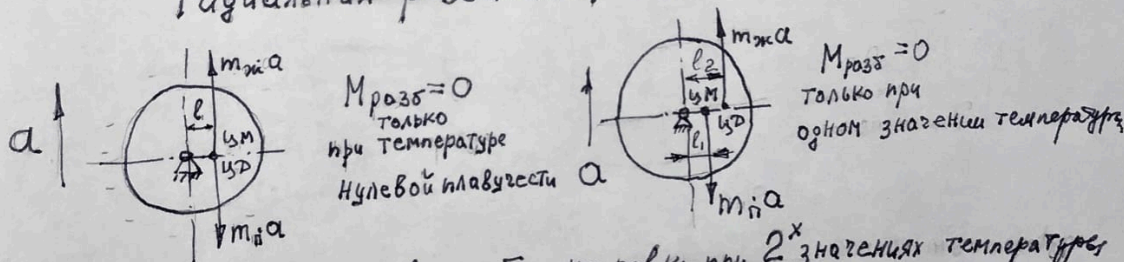 a
mжa
l
ЦМ
ЦД
mпa
Мразб=0
только
при температуре
нулевой плавучести
a
mжa
l2
ЦМ
ЦД
l1
mпa
Мразб=0
только при
одном значении температуры
при 2х значениях температуры